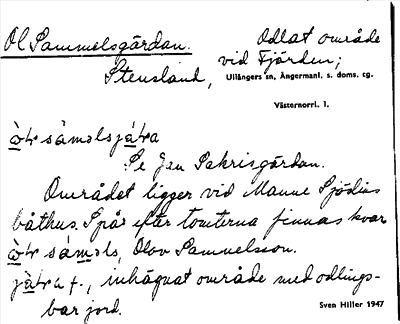 Ol Sammelsgårdan. Odlat område
Stensland, vid Fjärden;
Ullångers sn, Ångermanl. s. doms. cg.
Västernorrl. l.
òtr sámǝlsjáɽa
Se Jan Sakrisgårdan.
Området ligger vid Manne Sjödins
båthus. Spår efter tomterna finnas kvar
òtr sámǝls, Olov Samuelsson.
jáɽa f., inhägnat område med odlings-
bar jord.
Sven Hiller 1947